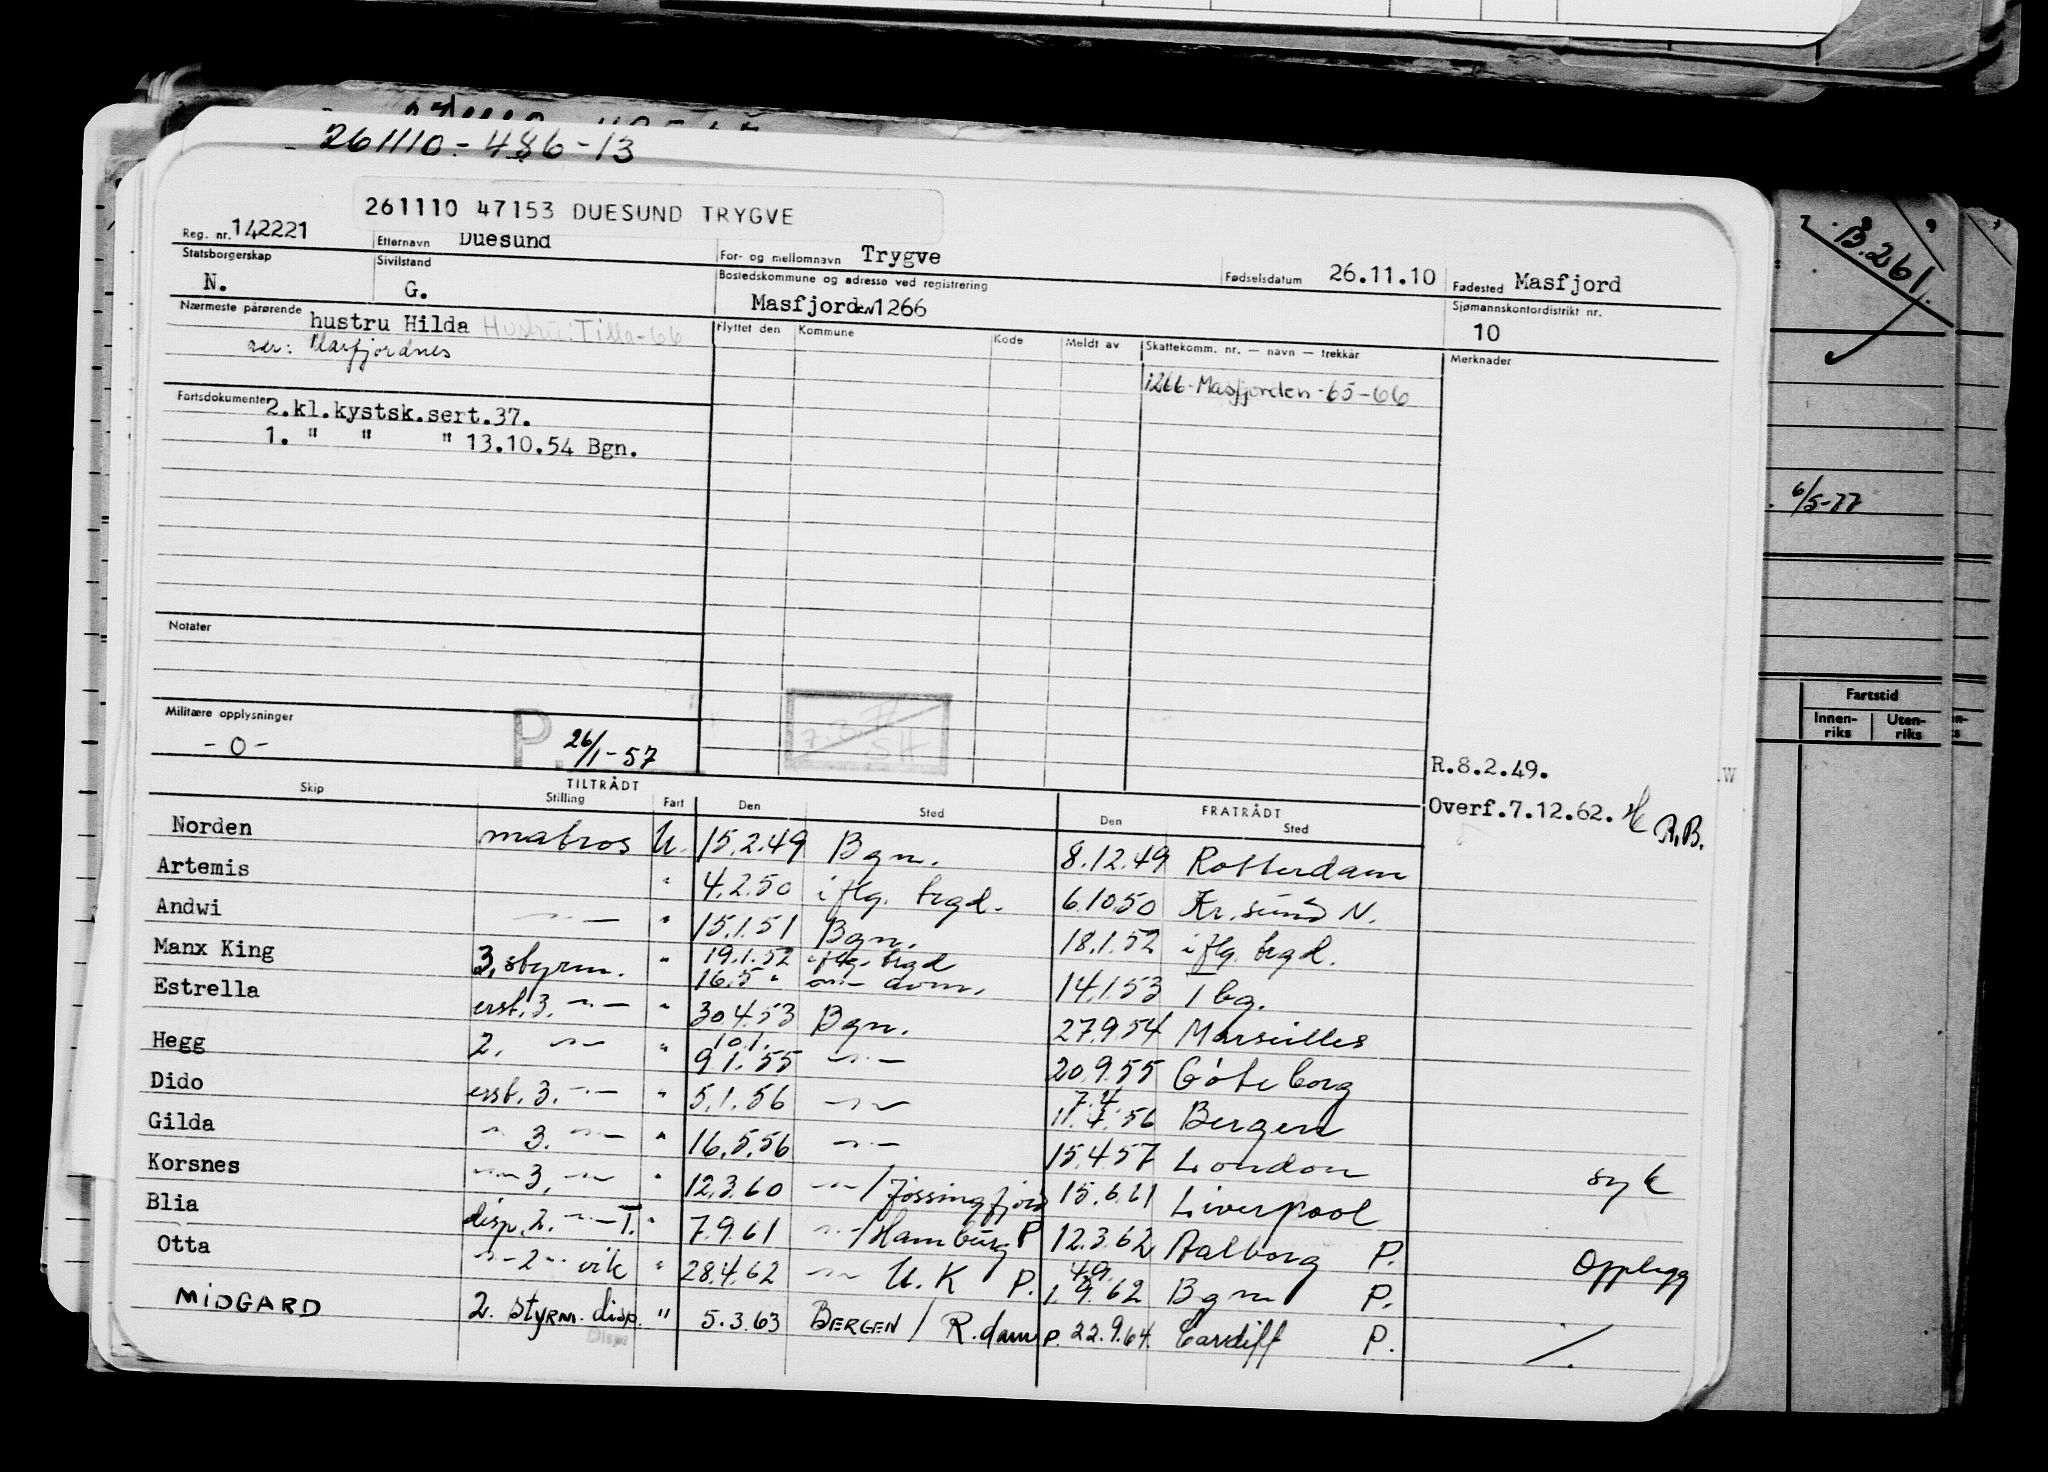 261110-486-13
261110 47153 DUESUND TRYGVE
Reg. nr. 142221 Etternavn Duesund For- og mellomnavn Trygve Fødselsdatum 26.11.10 Fødested Masfjord
Statsborgerskap N. Sivilstand G. Bostedskommune og adresse ved registrering Masfjorden 1266 Sjømannskontordistrikt nr. 10
Nærmeste pårørende hustru Hilda Hustru: Tilla-66 Flyttet den Kommune Kode Meldt av Skattekomm. nr. — navn — trekkår Merknader
adr: Masfjordnes
1266-Masfjorden-65-66
Fartsdokumenter 2.kl.kystsk.sert.37.
1. " " " 13.10.54 Bgn.
Notater
Militære opplysninger
-0- P. 26/1-57
R.8.2.49.
Overf.7.12.62. R.B.
TILTRÅDT FRATRÅDT
Skip Stilling Fart Den Sted Den Sted
Norden matros U. 15.2.49 Bgn. 8.12.49 Rotterdam
Artemis " 4.2.50 iflg. brgd. 6.10.50 Kr.sund N.
Andwi —"— " 15.1.51 Bgn. 18.1.52 iflg. brgd.
Manx King 3. styrm. " 19.1.52 iflg. brgd 14.1.53 Tbg.
16.5 " dom.
Estrella erst. 3. —"— " 30.4.53 Bgn. 27.9.54 Marseilles
10.1.
Hegg 2. —"— " 9.1.55 —"— 20.9.55 Göteborg
7.4
Dido erst. 3. —"— " 5.1.56 —"— 11.4.56 Bergen
Gilda " 3. —"— " 16.5.56 —"— 15.4.57 London syk
Korsnes —"— 3. —"— " 12.3.60 —"—/Jøssingfjord 15.6.61 Liverpool
Blia disp. 2. —"— T. " 7.9.61 —"—/Hamburg P 12.3.62 Aalborg P. Opplegg
4.9.
Otta —"— 2 —"— vik " 28.4.62 —"— U.K P. 1.9.62 Bgn P.
MIDGARD 2. styrm. disp. " 5.3.63 BERGEN / R.dam P. 22.9.64 Cardiff P. /.
Disp
B.261.
6/5-77
Fartstid
Innen-riks Uten-riks